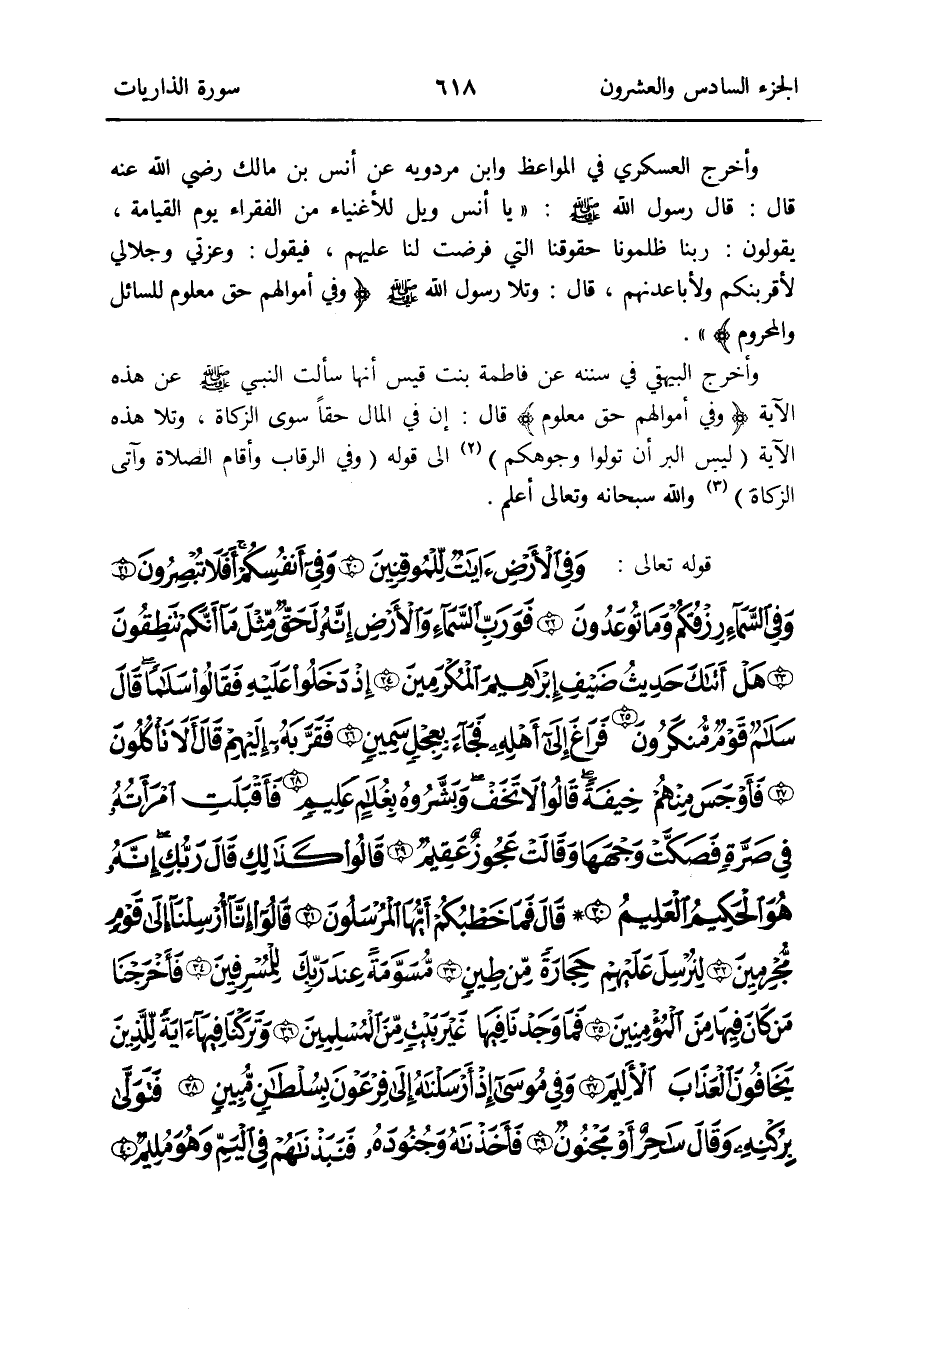 الجزء السادس والعشرون ٦١٨ سورة الذاريات
وأخرج العسكري في المواعظ وابن مردويه عن أنس بن مالك رضي الله عنه
قال : قال رسول الله ﷺ : « يا أنس ويل للأغنياء من الفقراء يوم القيامة ،
يقولون : ربنا ظلمونا حقوقنا التي فرضت لنا عليهم ، فيقول : وعزتي وجلالي
لأقربنكم ولأباعدنهم ، قال : وتلا رسول الله ﷺ ﴿ وفي أموالهم حق معلوم للسائل
والمحروم ﴾ » .
وأخرج البيهقي في سننه عن فاطمة بنت قيس أنها سألت النبي ﷺ عن هذه
الآية ﴿ وفي أموالهم حق معلوم ﴾ قال : إن في المال حقاً سوى الزكاة ، وتلا هذه
الآية ( ليس البر أن تولوا وجوهكم )(٢) الى قوله ( وفي الرقاب وأقام الصلاة وآتى
الزكاة )(٣) والله سبحانه وتعالى أعلم .
قوله تعالى : وَفِي ٱلْأَرْضِ ءَايَٰتٌ لِّلْمُوقِنِينَ ٢٠ وَفِىٓ أَنفُسِكُمْ ۚ أَفَلَا تُبْصِرُونَ ٢١
وَفِي ٱلسَّمَآءِ رِزْقُكُمْ وَمَا تُوعَدُونَ ٢٢ فَوَرَبِّ ٱلسَّمَآءِ وَٱلْأَرْضِ إِنَّهُۥ لَحَقٌّ مِّثْلَ مَآ أَنَّكُمْ تَنطِقُونَ
٢٣ هَلْ أَتَىٰكَ حَدِيثُ ضَيْفِ إِبْرَٰهِيمَ ٱلْمُكْرَمِينَ ٢٤ إِذْ دَخَلُوا۟ عَلَيْهِ فَقَالُوا۟ سَلَٰمًا ۖ قَالَ
سَلَٰمٌ قَوْمٌ مُّنكَرُونَ ٢٥ فَرَاغَ إِلَىٰٓ أَهْلِهِۦ فَجَآءَ بِعِجْلٍ سَمِينٍ ٢٦ فَقَرَّبَهُۥٓ إِلَيْهِمْ قَالَ أَلَا تَأْكُلُونَ
٢٧ فَأَوْجَسَ مِنْهُمْ خِيفَةً ۖ قَالُوا۟ لَا تَخَفْ ۖ وَبَشَّرُوهُ بِغُلَٰمٍ عَلِيمٍ ٢٨ فَأَقْبَلَتِ ٱمْرَأَتُهُۥ
فِي صَرَّةٍ فَصَكَّتْ وَجْهَهَا وَقَالَتْ عَجُوزٌ عَقِيمٌ ٢٩ قَالُوا۟ كَذَٰلِكِ قَالَ رَبُّكِ ۖ إِنَّهُۥ
هُوَ ٱلْحَكِيمُ ٱلْعَلِيمُ ٣٠ * قَالَ فَمَا خَطْبُكُمْ أَيُّهَا ٱلْمُرْسَلُونَ ٣١ قَالُوٓا۟ إِنَّآ أُرْسِلْنَآ إِلَىٰ قَوْمٍ
مُّجْرِمِينَ ٣٢ لِنُرْسِلَ عَلَيْهِمْ حِجَارَةً مِّن طِينٍ ٣٣ مُّسَوَّمَةً عِندَ رَبِّكَ لِلْمُسْرِفِينَ ٣٤ فَأَخْرَجْنَا
مَن كَانَ فِيهَا مِنَ ٱلْمُؤْمِنِينَ ٣٥ فَمَا وَجَدْنَا فِيهَا غَيْرَ بَيْتٍ مِّنَ ٱلْمُسْلِمِينَ ٣٦ وَتَرَكْنَا فِيهَآ ءَايَةً لِّلَّذِينَ
يَخَافُونَ ٱلْعَذَابَ ٱلْأَلِيمَ ٣٧ وَفِي مُوسَىٰٓ إِذْ أَرْسَلْنَٰهُ إِلَىٰ فِرْعَوْنَ بِسُلْطَٰنٍ مُّبِينٍ ٣٨ فَتَوَلَّىٰ
بِرُكْنِهِۦ وَقَالَ سَٰحِرٌ أَوْ مَجْنُونٌ ٣٩ فَأَخَذْنَٰهُ وَجُنُودَهُۥ فَنَبَذْنَٰهُمْ فِي ٱلْيَمِّ وَهُوَ مُلِيمٌ ٤٠